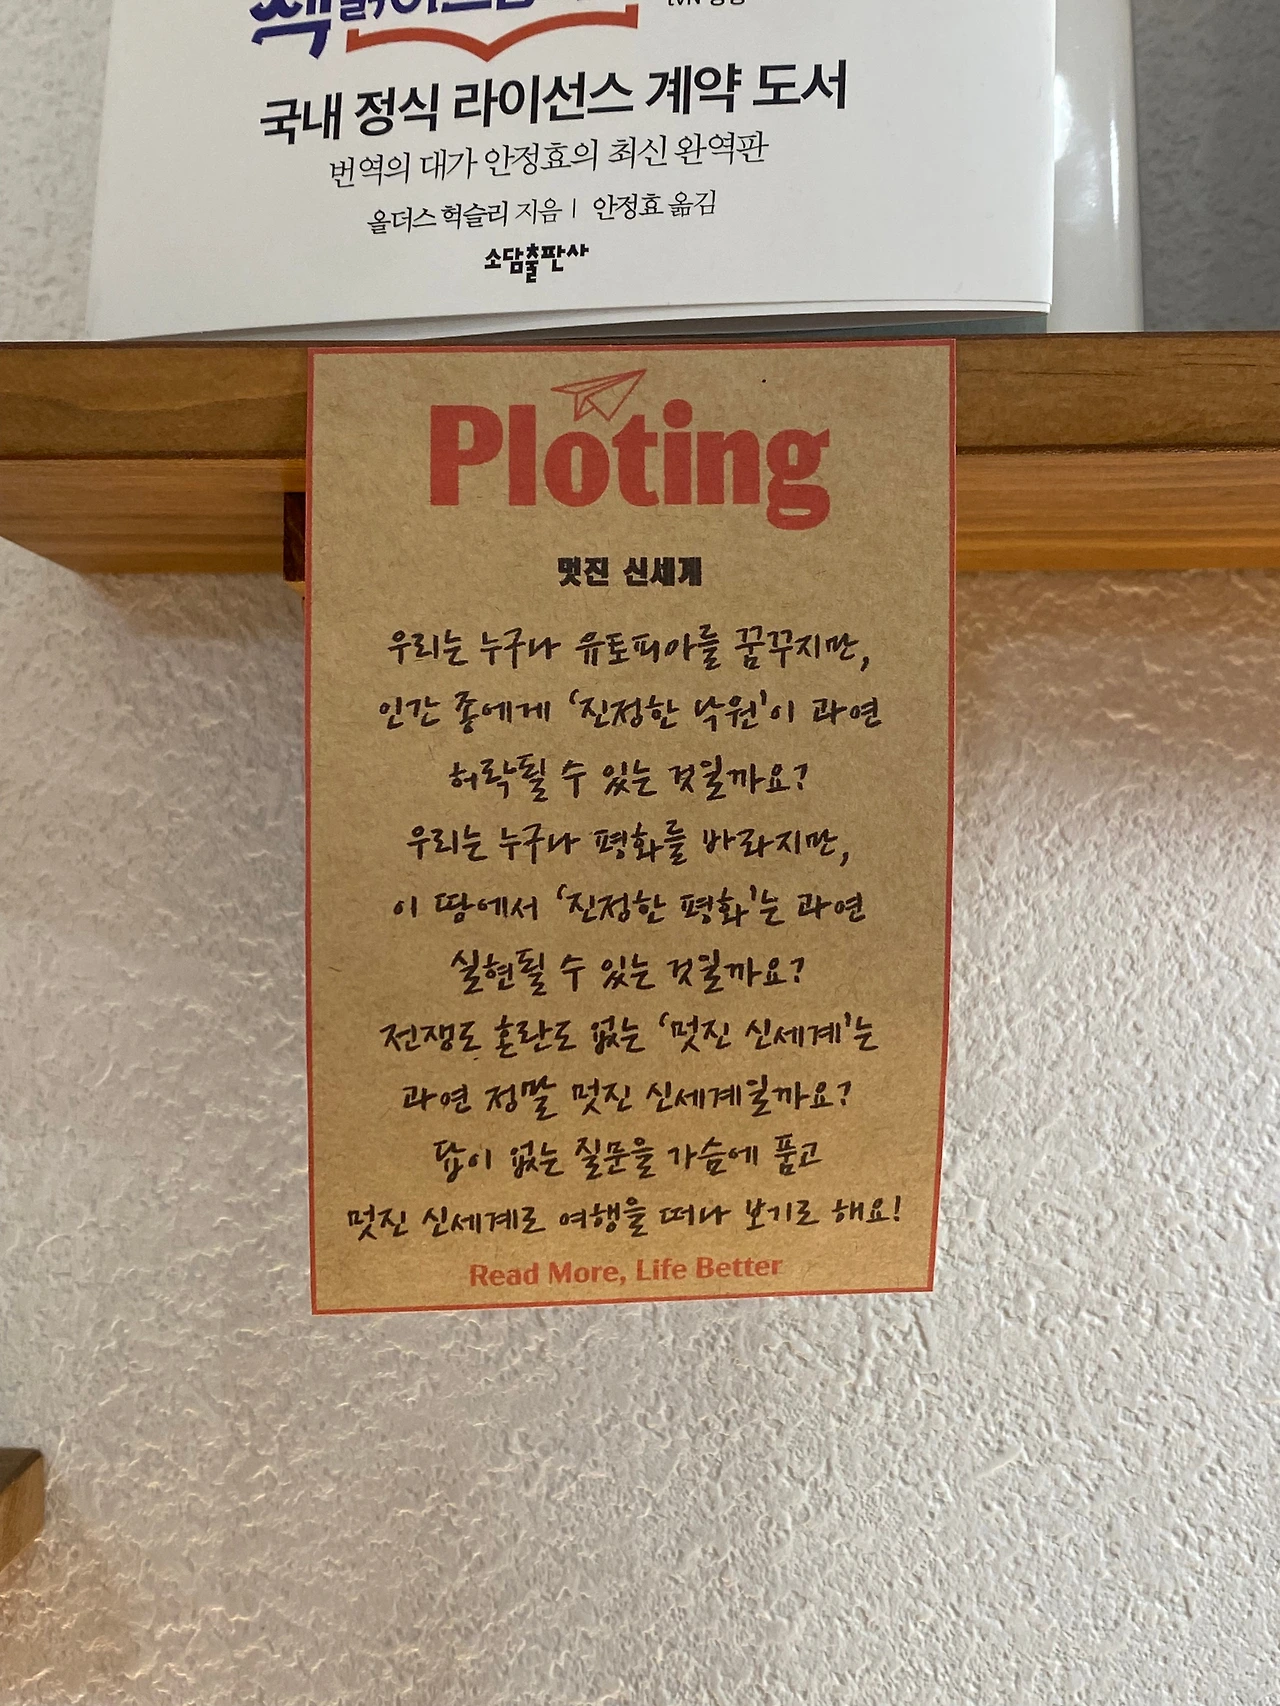 국내 정식 라이선스 계약 도서
번역의 대가 안정효의 최신 완역판
올더스 헉슬리 지음 | 안정효 옮김
소담출판사
Ploting
멋진 신세계
우리는 누구나 유토피아를 꿈꾸지만,
인간 종에게 '진정한 낙원'이 과연
허락될 수 있는 것일까요?
우리는 누구나 평화를 바라지만,
이 땅에서 '진정한 평화'는 과연
실현될 수 있는 것일까요?
전쟁도 혼란도 없는 '멋진 신세계'는
과연 정말 멋진 신세계일까요?
답이 없는 질문을 가슴에 품고
멋진 신세계로 여행을 떠나 보기로 해요!
Read More, Life Better